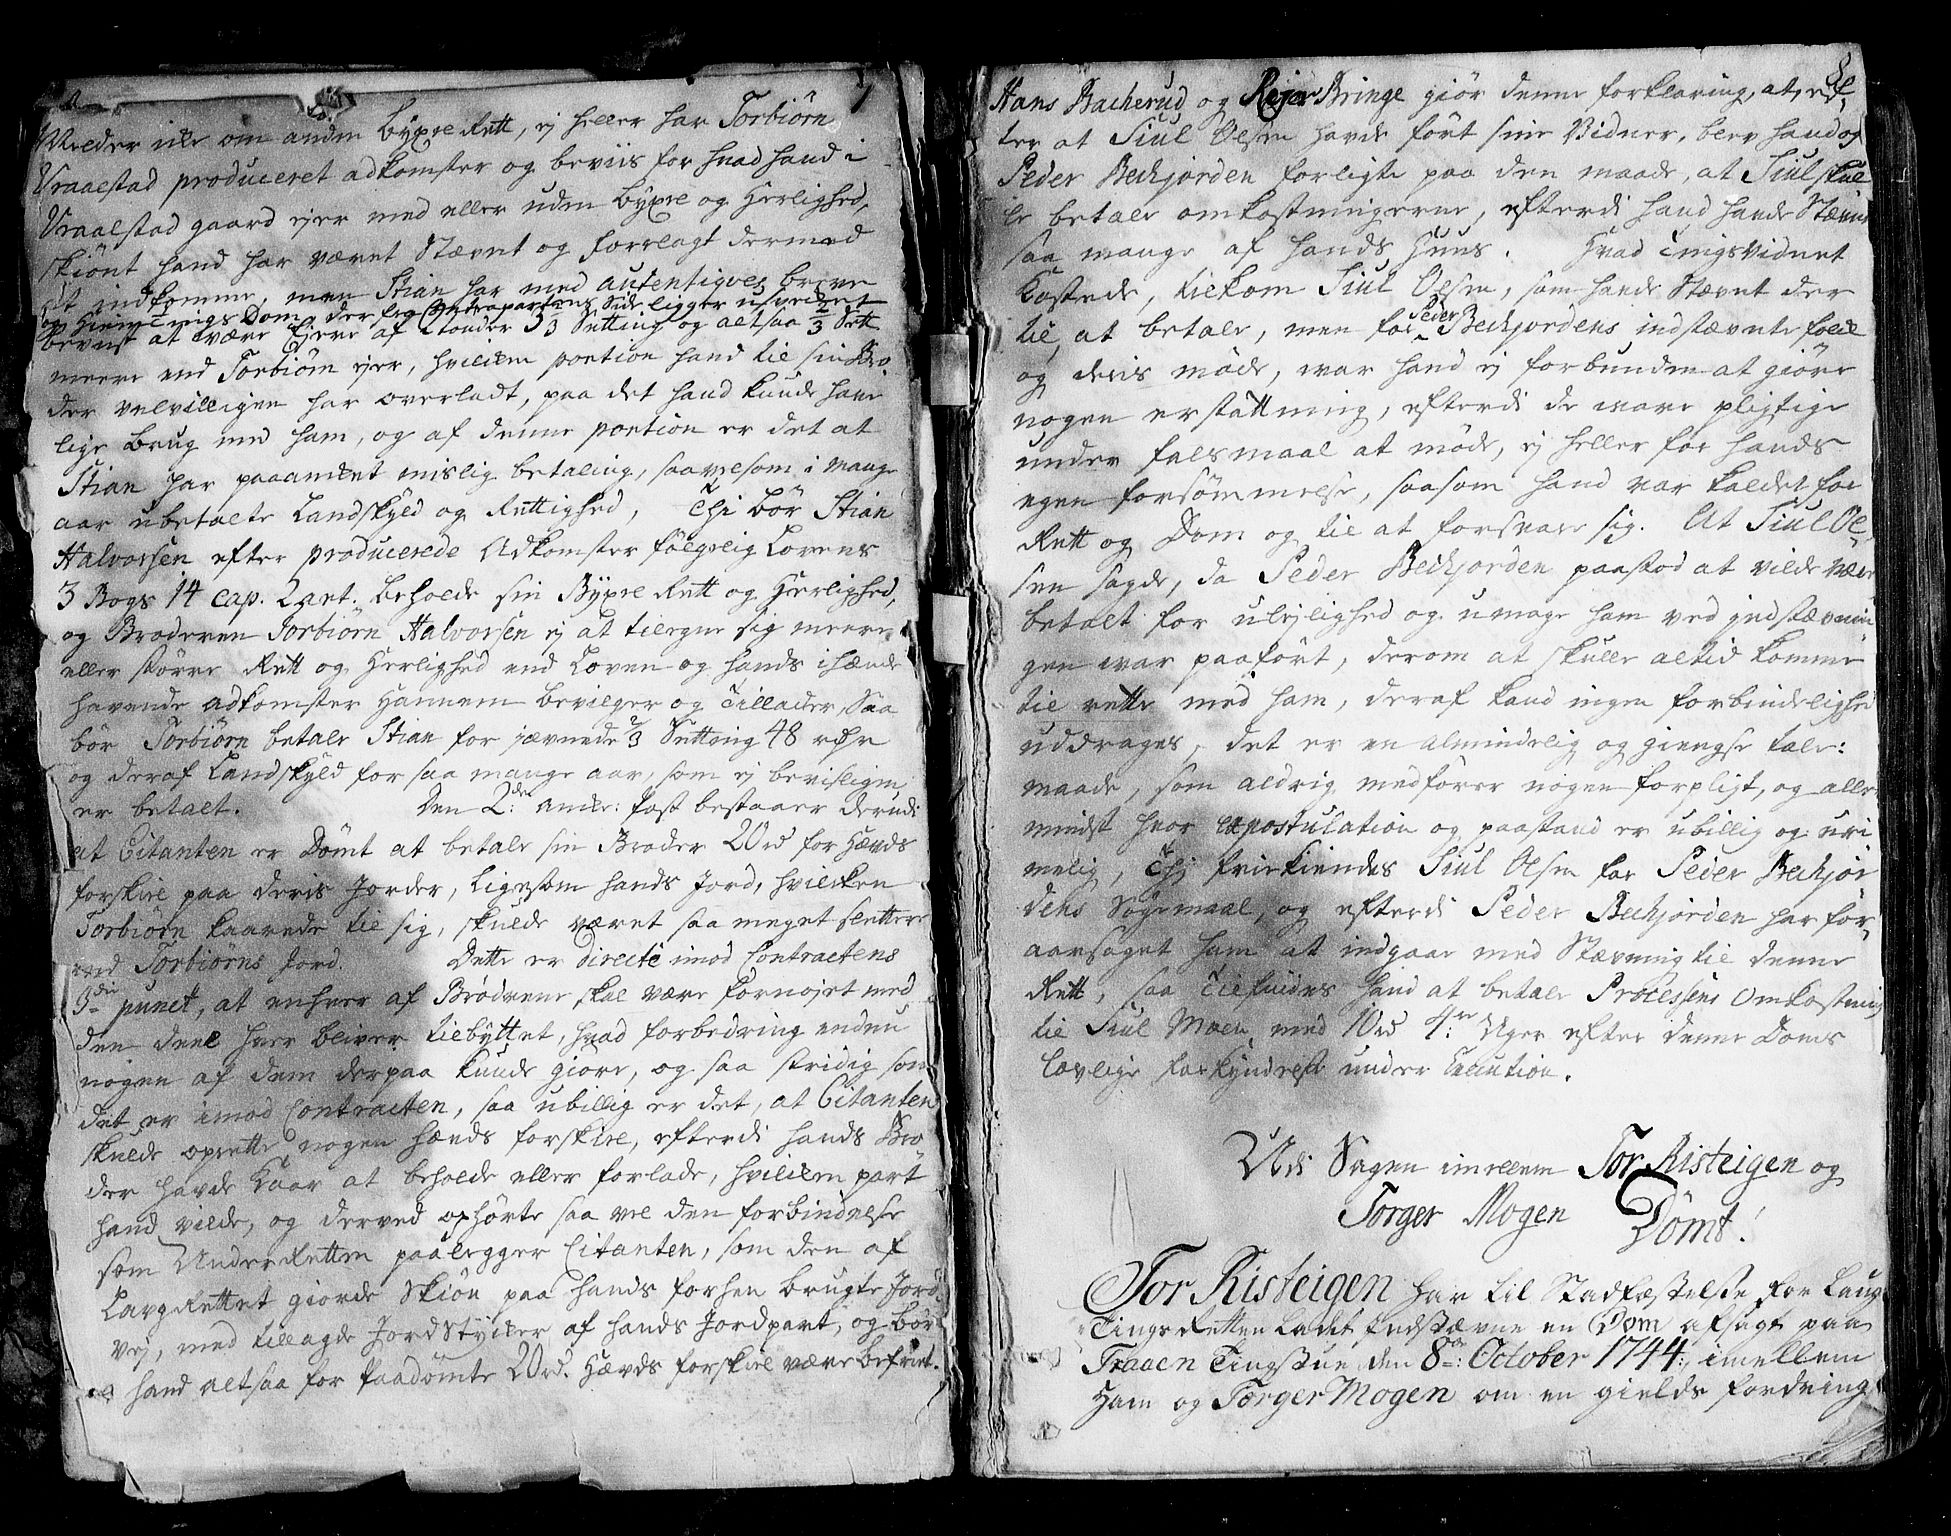 7
Melder icke om anden bygsel Rett, ej heller har Torbiørn
Vraalstad produceret adkomster og beviis for hvad hand i
Vraalstad gaard ejer med eller uden bygsel og Herlighed,
skiønt hand har været Stævnt og forelagt dermed
at indkomme, men Stian har med autentiques breve
og Hiem Tings Dom, der fra Contrapartens side ligger usvecket
beviist at være Ejere af 2 tønder 3 1/3 Setting og altsaa 2/3 Sett
meere end Torbiørn ejer, hvilken portion hand til sin Bro
der velvilligen har overladt, paa det hand kunde have
lige brug med ham, og af denne portion er det at
Stian har paaanket mislig betaling, saavelsom i mange
aar ubetalte Landskyld og Rettighed, Thi bør Stian
Halvorsen efter producerede Adkomster følgelig Lovens
3 Bogs 14 cap. 2 art. beholde sin Bygsel Rett og Herlighed,
og Broderen Torbiørn Halvorsen ej at tilegne sig meere
eller større Rett og Herlighed end Loven og hands ihænde
havende adkomster Hannem bevilger og Tillader, Saa
bør Torbiørn betale Stian for jævnede 2/3 Setting 48 rdr
og deraf Landskyld for saa mange aar, som ej bevisligen
er betalt. Den 2de: anke: Post bestaaer derudi
at Citanten er Dømt at betale sin Broder 20rd for Hævds
forskiel paa deris Jorder, Ligesom hands Jord, hvilcken
Torbiørn kaarede til sig, skulde været saa meget slettere
end Torbiørns Jord. Dette er directe imod Contractens
3die punct, at enhver af Brødrene skal være fornøjet med
den deel hver bliver tilbÿttet, hvad forbedring enden
nogen af dem derpaa kunde giøre, og saa stridig som
det er imod Contracten, saa ubillig er det, at Citanten
skulde oprette nogen hævds forskiel, efterdi hands Bro
der havde Kaar at beholde eller forlade, hvilcken part
hand vilde, og derved ophørte saa vel den forbindelse
som Under Retten paalegger Citanten, som den af
Lavg Rettet giorde Skiøn paa hands forhen brugte Jord
vej, med tillagde Jord Stÿcker af hands Jordpart, og bør
hand altsaa for Paadømte 20rd. Hævds forskiel være befriet.
8
Hans Bacherud og Rejer Bringe giør denne forklaring, at, ef
ter at Siul Olsen havde ført sine Vidner, blev hand og
Peder Beckjorden forligte paa den maade, at Siul skul
le betale omkostningerne, efterdi hand havde Stævnt
saa mange af hands Huus. Hvad Tingsvidnet
kostede, tilkom Siul Olsen, som havde Stævnt der
til, at betale, men for Peder Beckjordens indstævnte folck
og deris møde, war hand ej forbunden at giøre
nogen erstattning, efterdi de ware pligtige
under falsmaal at møde, ej heller for hands
egen forsømmelse, saasom hand var kaldet for
Rett og Dom og til at forsvare sig. At Siul Ol
sen sagde, da Peder Beckjorden paastod at vilde være
betalt for ulejlighed og umage ham ved indstævnin
gen war paaført, derom at skulle altid komme
til rette med ham, deraf kand ingen forbindelighed
uddrages, det er en almindelig og giengse tale:
maade, som aldrig medfører nogen forpligt, og aller
mindst hvor expostulation og paastand er ubillig og uri
melig, Thi frikiendes Siul Olsen for Peder Beckjor
dens Søgemaal, og efterdi Peder Beckjorden har for
aarsaget ham at indgaae med Stævning til denne
Rett, saa Tilfindes hand at betale Processens Omkostning
til Siul Moen med 10rd 4re: Uger efter denne Doms
lovlige forkyndelse under Execution.
Udi Sagen imellem Tor Risteigen og
Torger Mogen Dömt!
Tor Risteigen har til Stadfæstelse for Laug
Tings Retten Ladet Indstævne en Dom afsagt paa
Fraaen Tingstue den 8da: October 1744, imellem
Ham og Torger Mogen om en gields fordring